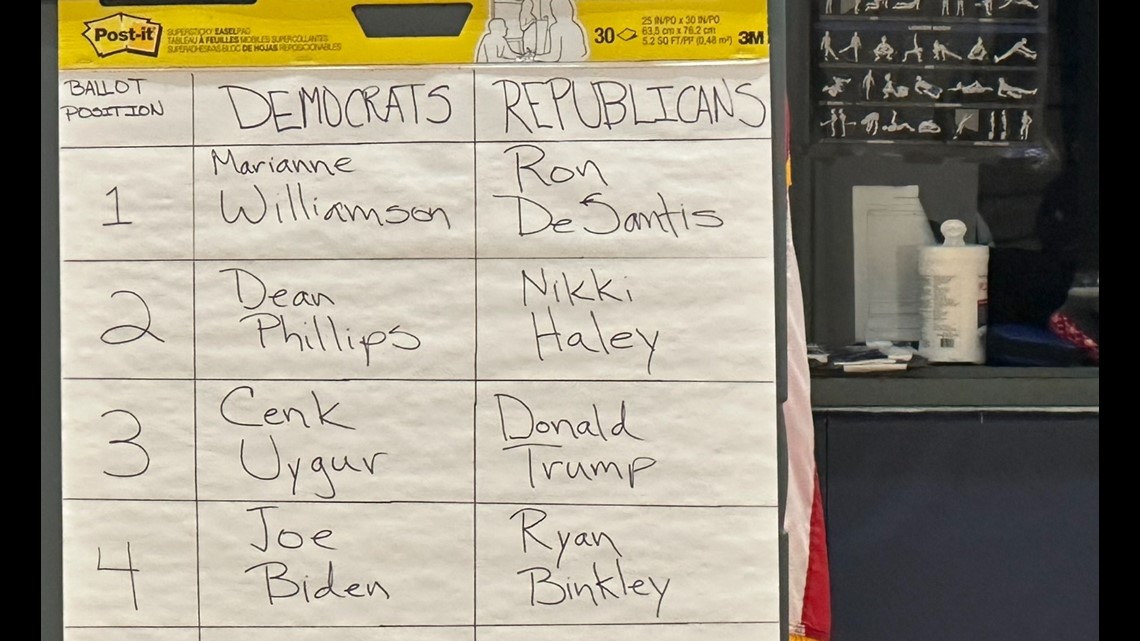 Post-it
SUPERSTICKY EASELPAD
TABLEAU À FEUILLES MOBILES SUPERCOLLANTES
SUPERADHESIVAS BLOC DE HOJAS REPOSICIONABLES
30
25 IN/PO x 30 IN/PO
63,5 cm x 76,2 cm
5.2 SQ FT/PI² (0,48 m²)
3M
BALLOT POSITION
DEMOCRATS
REPUBLICANS
1
Marianne
Williamson
Ron
DeSantis
2
Dean
Phillips
Nikki
Haley
3
Cenk
Uygur
Donald
Trump
4
Joe
Biden
Ryan
Binkley